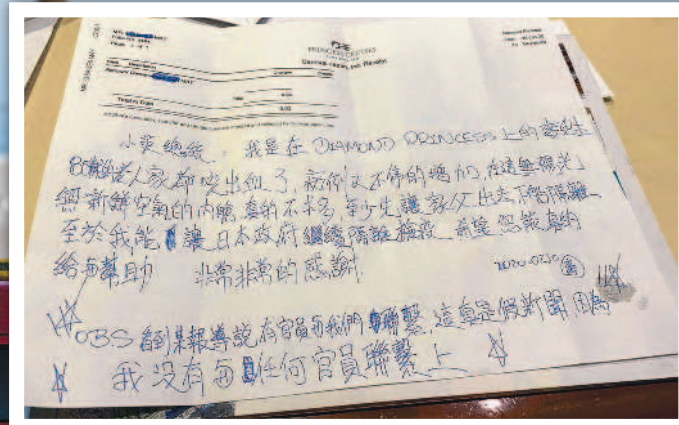 PRINCESS CRUISES
小英總統 我是在 DIAMOND PRINCESS 上的
老人家都咳出血了,病例又不停的增加,在這無陽光
無新鮮空氣的內艙,真的 不多,至少先讓 父出去下船隔離
至於我能 讓日本政府繼續隔離檢疫 希望您能真的
給與幫助 非常非常的感謝
2020-02-10
OBS 看到某報導說,有官員與我們聯繫,這真是假新聞 因為
我沒有與任何官員聯繫上